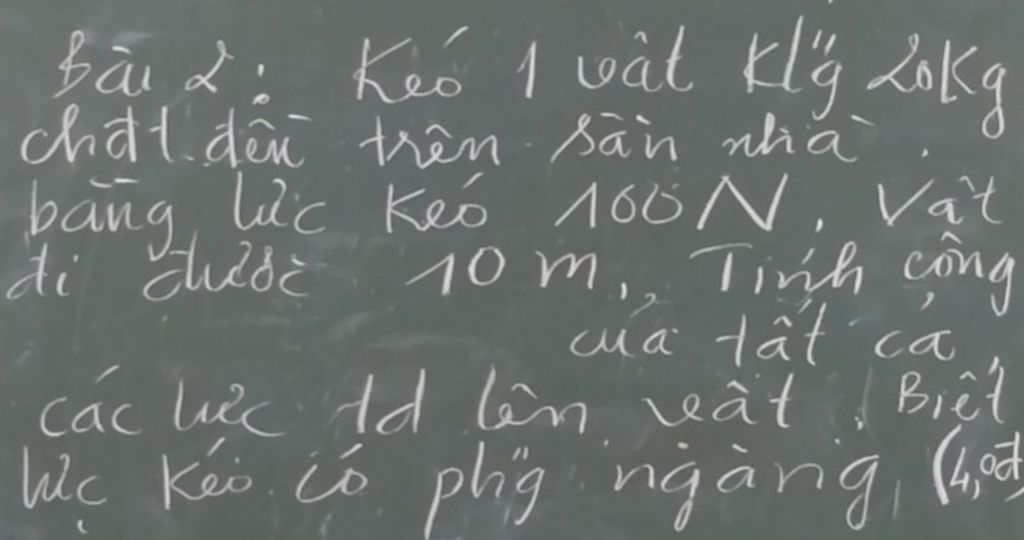 Bài 2: Kéo 1 vật klg 20Kg
chđt đều trên sàn nhà.
bằng lực kéo 100N. Vật
đi được 10m. Tính công
của tất cả
các lực td lên vật. Biết
lực kéo có phg ngang (4,0đ)